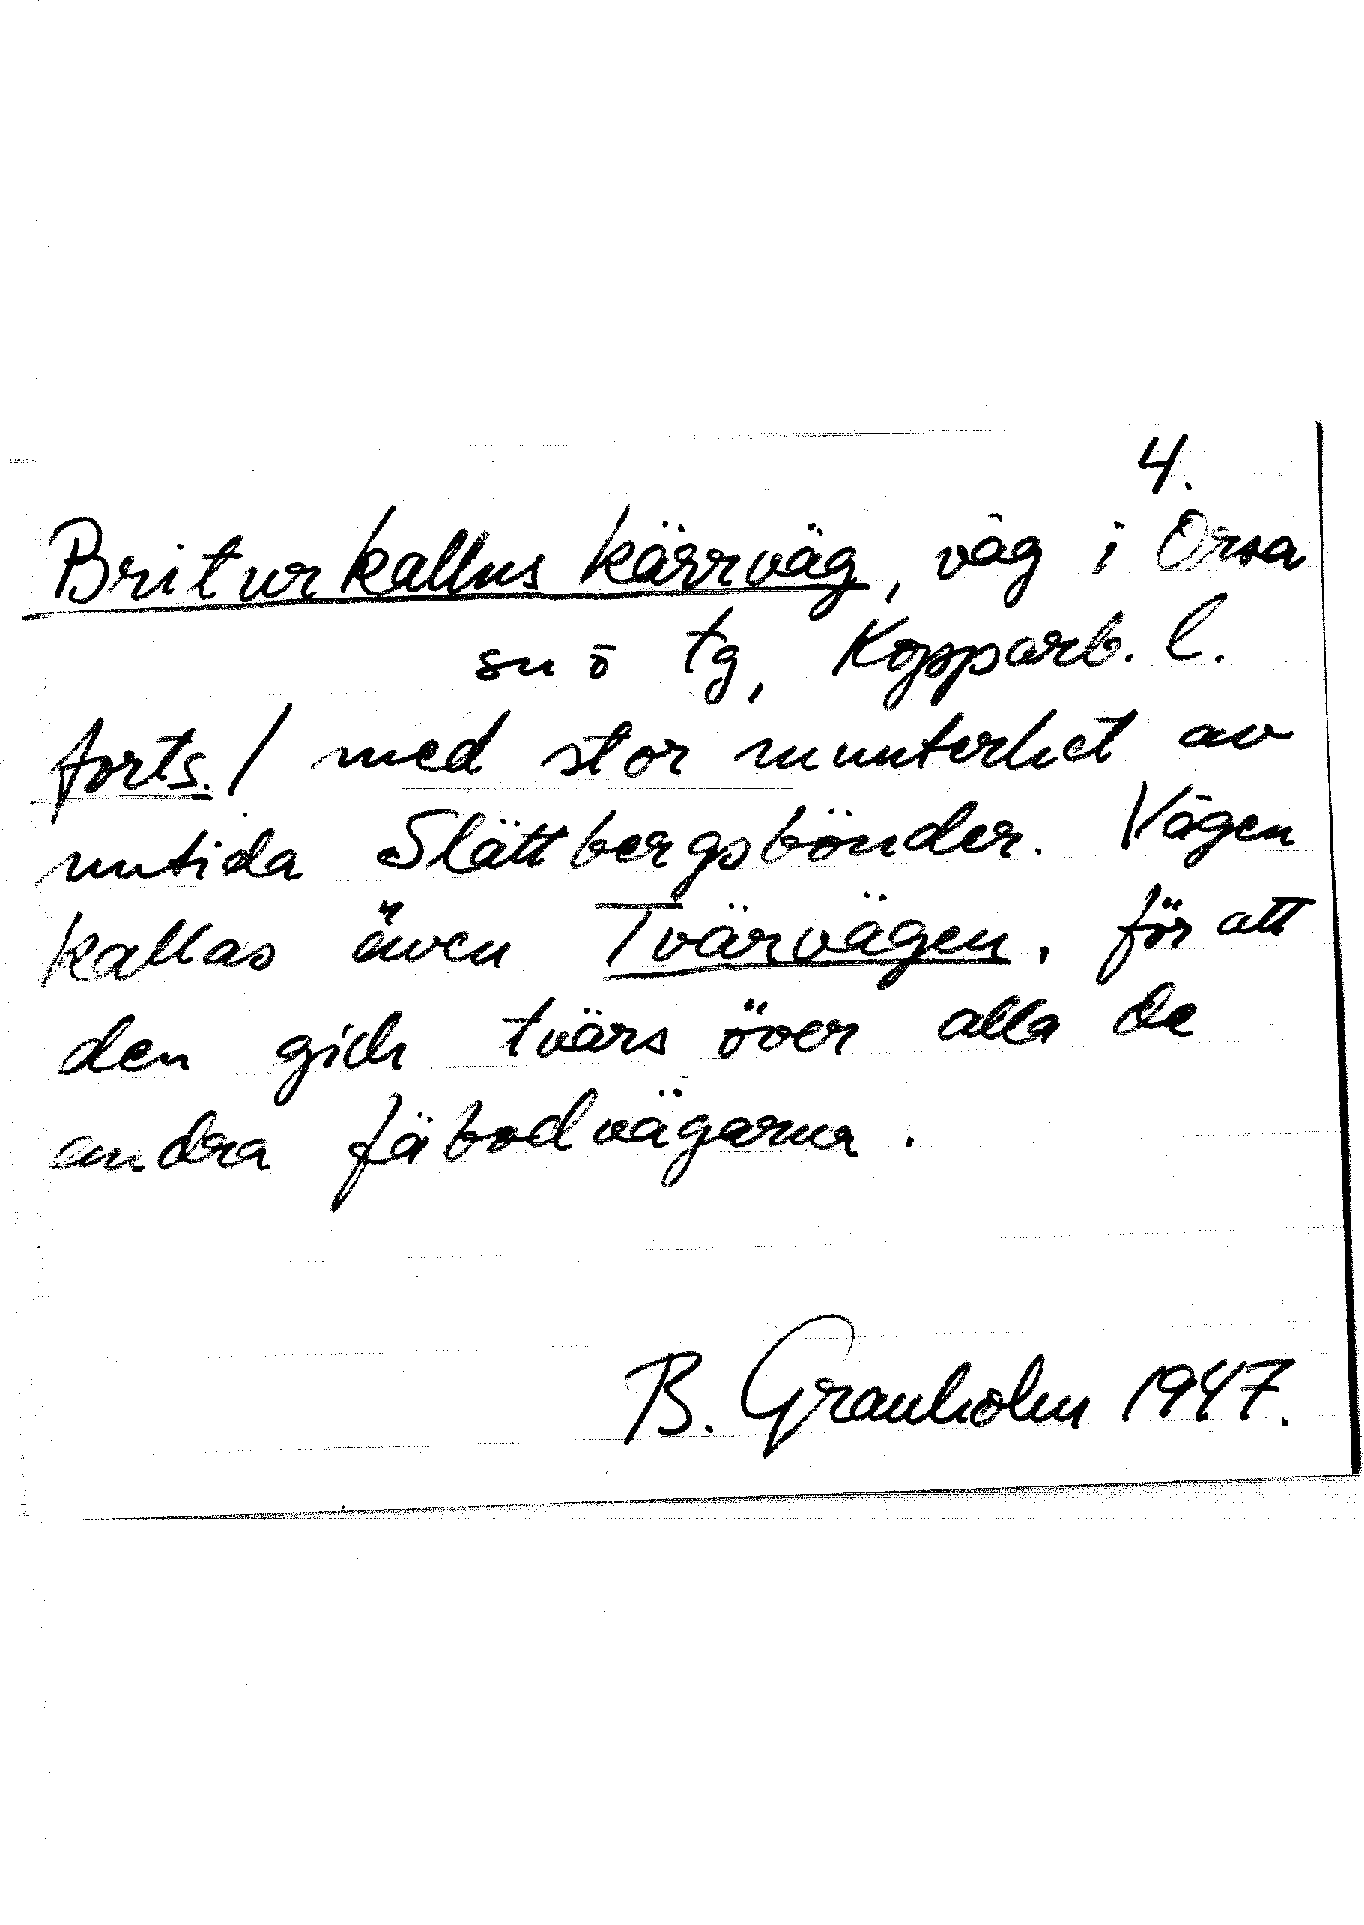 4.
Briturkallus kärrväg, väg i Orsa
sn o tg, Kopparb. l.
forts./ med stor munterhet av
nutida Slättbergsbönder. Vägen
kallas även Tvärvägen, för att
den gick tvärs över alla de
andra fäbodvägarna.
B. Granholm 1947.